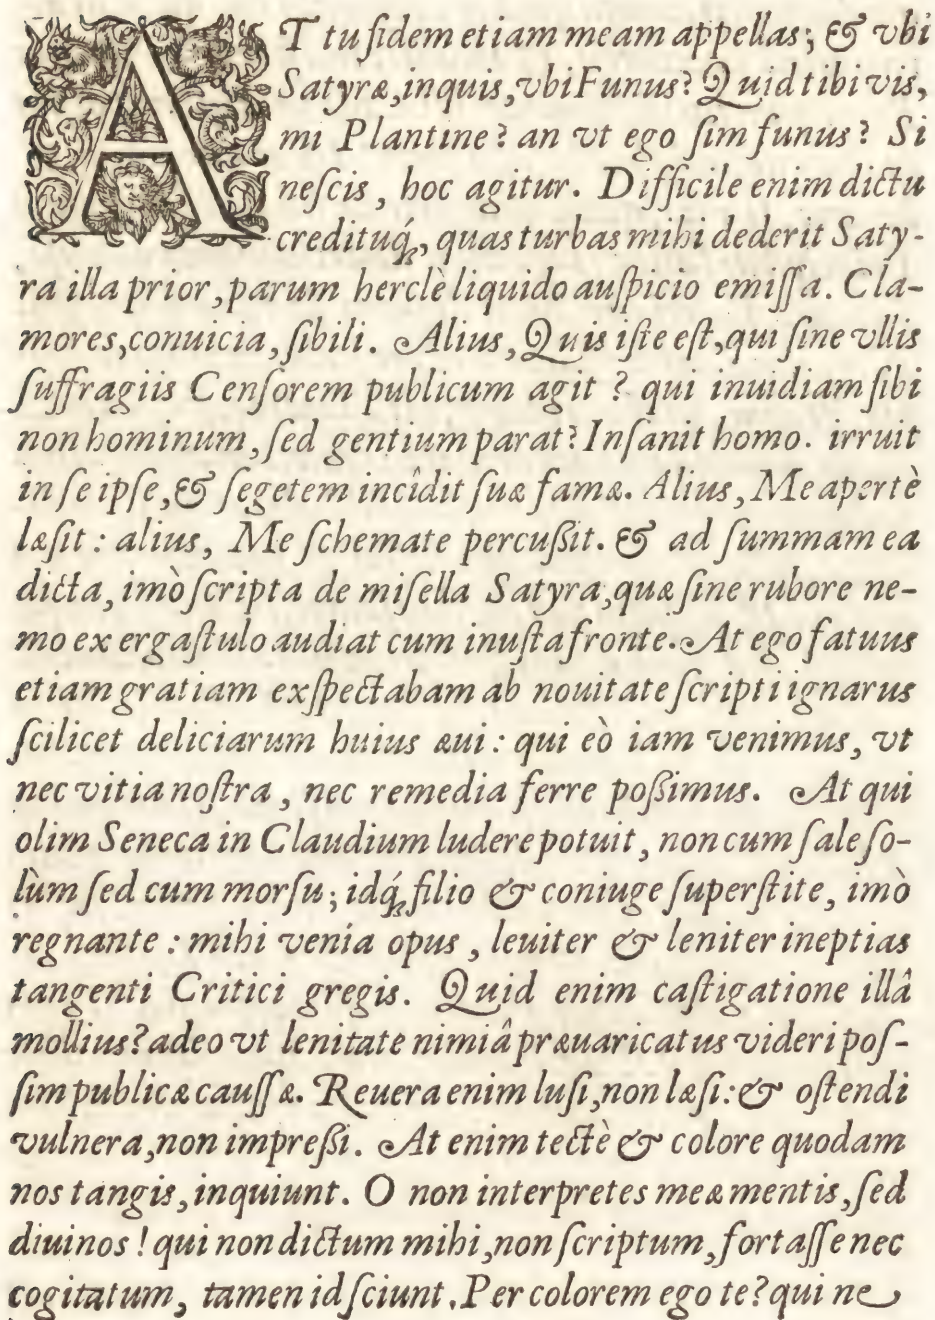 AT tu fidem etiam meam appellas; & vbi
Satyræ, inquis, vbi Funus? Quid tibi vis,
mi Plantine? an vt ego ſim funus? Si
neſcis, hoc agitur. Difficile enim dictu
credituq́;, quas turbas mihi dederit Saty-
ra illa prior, parum herclè liquido auſpicio emiſſa. Cla-
mores, conuicia, ſibili. Alius, Quis iſte eſt, qui ſine vllis
ſuffragiis Cenſorem publicum agit? qui inuidiam ſibi
non hominum, ſed gentium parat? Inſanit homo. irruit
in ſe ipſe, & ſegetem incîdit ſuæ famæ. Alius, Me apertè
læſit: alius, Me ſchemate percuſſit. & ad ſummam ea
dicta, imò ſcripta de miſella Satyra, quæ ſine rubore ne-
mo ex ergaſtulo audiat cum inuſta fronte. At ego fatuus
etiam gratiam exſpectabam ab nouitate ſcripti ignarus
ſcilicet deliciarum huius æui: qui eò iam venimus, vt
nec vitia noſtra, nec remedia ferre poſſimus. At qui
olim Seneca in Claudium ludere potuit, non cum ſale ſo-
lùm ſed cum morſu; idq́; filio & coniuge ſuperſtite, imò
regnante: mihi venia opus, leuiter & leniter ineptias
tangenti Critici gregis. Quid enim caſtigatione illâ
mollius? adeo vt lenitate nimiâ præuaricatus videri poſ-
ſim publicæ cauſſæ. Reuera enim luſi, non læſi: & oſtendi
vulnera, non impreſſi. At enim tectè & colore quodam
nos tangis, inquiunt. O non interpretes meæ mentis, ſed
diuinos! qui non dictum mihi, non ſcriptum, fortaſſe nec
cogitatum, tamen id ſciunt. Per colorem ego te? qui ne